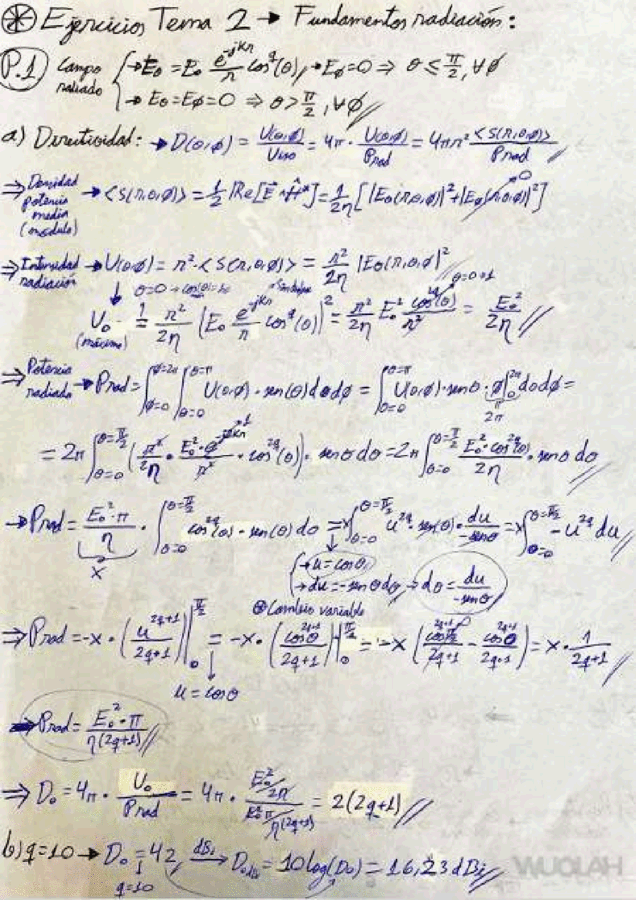 ⊛ Ejercicios Tema 2 → Fundamentos radiación:
P.1 Campo radiado { → Eθ = E₀ e^(-jkr)/r cos^q(θ), → Eφ = 0 ⇒ θ ≤ π/2, ∀φ
→ Eθ = Eφ = 0 ⇒ θ > π/2, ∀φ //
a) Directividad: → D(θ,φ) = U(θ,φ)/Uiso = 4π · U(θ,φ)/Prad = 4πr² <S(r,θ,φ)>/Prad //
⇒ Densidad potencia media (módulo) → <S(r,θ,φ)> = 1/2 Re[E · H*] = 1/2η [|Eθ(r,θ,φ)|² + |Eφ(r,θ,φ)|²] → 0
⇒ Intensidad radiación → U(θ,φ) = r² · <S(r,θ,φ)> = r²/2η |Eθ(r,θ,φ)|² //
θ=0 → cos(θ)=1
U₀ (máxima) = r²/2η (E₀ e^(-jkr)/r cos^q(θ))² = r²/2η E₀² cos^2q(θ)/r² = E₀²/2η //
⇒ Potencia radiada → Prad = ∫_(φ=0)^(φ=2π) ∫_(θ=0)^(θ=π) U(θ,φ) · sen(θ) dθ dφ = ∫_(θ=0)^(θ=π) U(θ,φ) · senθ · φ|_0^2π dθ dφ =
= 2π ∫_(θ=0)^(θ=π/2) (r²/2η · E₀² · e^(-j2kr)/r² · cos^2q(θ)) · senθ dθ = 2π ∫_(θ=0)^(θ=π/2) E₀² · cos^2q(θ)/2η · senθ dθ //
→ Prad = E₀² · π/η · ∫_(θ=0)^(θ=π/2) cos^2q(θ) · sen(θ) dθ = x ∫_(θ=0)^(θ=π/2) u^2q · sen(θ) · du/-senθ = x ∫_(θ=0)^(θ=π/2) -u^2q du //
x { → u = cosθ, → du = -senθ dθ → dθ = du/-senθ
⊛ Cambio variable
⇒ Prad = -x · (u^(2q+1)/2q+1)|_0^(π/2) = -x · (cosθ^(2q+1)/2q+1)|_0^(π/2) = -x (cos π/2^(2q+1)/2q+1 - cos0^(2q+1)/2q+1) = x · 1/2q+1 //
u = cosθ
⇒ Prad = E₀² · π/η(2q+1) //
⇒ D₀ = 4π · U₀/Prad = 4π · (E₀²/2η)/(E₀² π/η(2q+1)) = 2(2q+1) //
b) q=10 → D₀ = 42, dBi → D₀dBi = 10 log(D₀) = 16,23 dBi //
q=10
WUOLAH